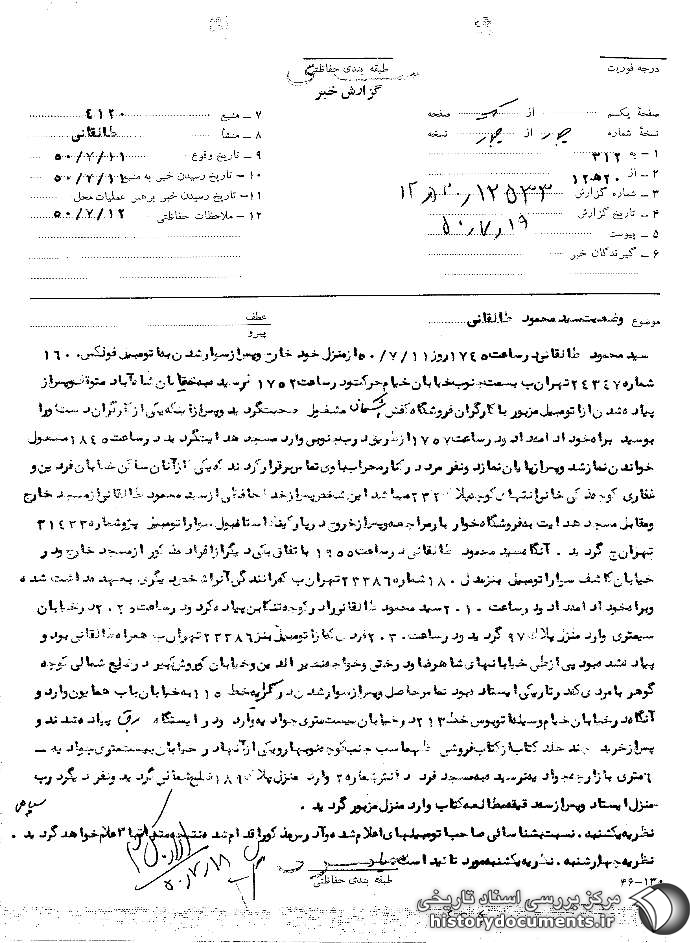 درجه فوریت
طبقه بندی حفاظتی
گزارش خبر
صفحهٔ یکم از صفحه
نسخهٔ شماره چهار از چهار نسخه
۱ - به ۳۱۲
۲ - از ۱۲ ۵۲۰
۳ - شماره گزارش ۱۲۵۳۳
۴ - تاریخ گزارش ۵۰/۷/۱۹
۵ - پیوست
۶ - گیرندگان خبر
۷ - منبع ۴۱۲۰
۸ - منشأ طالقانی
۹ - تاریخ وقوع ۵۰/۷/۱۱
۱۰ - تاریخ رسیدن خبر به منبع ۵۰/۷/۱۱
۱۱ - تاریخ رسیدن خبر برهبر عملیات محل
۱۲ - ملاحظات حفاظتی ۵۰/۷/۱۲
موضوع وضعیت سید محمود طالقانی
عطف
پیرو
سید محمود طالقانی در ساعت ۱۷۴۵ روز ۵۰/۷/۱۱ از منزل خود خارج و پس از سوار شدن به اتومبیل فولکس ۱۶۰۰
شماره ۲۴۳۴۷ تهران ب بسمت جنوب خیابان خیام حرکت و در ساعت ۱۷۵۲ نرسیده به خیابان شاه‌آباد متوقف و پس از
پیاده شدن از اتومبیل مزبور با کارگران فروشگاه کفش مشغول صحبت گردید و پس از آنکه یکی از کارگران دست او را
بوسید براه خود ادامه داد و در ساعت ۱۷۵۷ از طریق درب جنوبی وارد مسجد هدایت گردید در ساعت ۱۸۴۵ مشغول
خواندن نماز شد و پس از پایان نماز دو نفر مرد در کنار محراب با وی تماس برقرار کردند که یکی از آنان ساکن خیابان فردین و
غفاری کوچه انتهای کوچه پلاک ۲۳۲ میباشد این شخص پس از خداحافظی از سید محمود طالقانی از مسجد خارج
و مقابل مسجد هدایت به فروشگاه خواربار مراجعه و پس از خروج در پارکینگ استانبول سوار اتومبیل پژو شماره ۳۱۴۲۳
تهران ج گردید . آنگاه سید محمود طالقانی در ساعت ۱۹۵۵ با تفاق یکی دیگر از افراد مذکور از مسجد خارج و در
خیابان کاشف سوار اتومبیل بنز مدل ۱۸۰ شماره ۲۳۳۸۶ تهران ب که رانندگی آن را شخص دیگری بعهده داشت شده
و براه خود ادامه داد و در ساعت ۲۰۱۰ سید محمود طالقانی را در کوچه تنکابن پیاده کرد و در ساعت ۲۰۲۰ در خیابان
سی متری وارد منزل پلاک ۹۷ گردید و در ساعت ۲۰۳۰ فردی که از اتومبیل بنز ۲۳۳۸۶ تهران ب همراه طالقانی بود و
پیاده شده بود پس از طی خیابانهای شاهرضا و درختی و خواجه نصیرالدین و خیابان کوروش کبیر در ضلع شمالی کوچه
گوهر با مردی که در تاریکی ایستاده بود تماس حاصل و پس از سوار شدن در خط ۱۱۵ به خیابان باب همایون وارد و
آنگاه در خیابان خیام وسیله اتوبوس خط ۲۱۳ در خیابان بیست متری جوادیه وارد و در ایستگاه پیاده شدند و
پس از خرید چند جلد کتاب از کتابفروشی طهماسب جنب کوچه نوبهار و یکی از آنها در خیابان بیست متری جوادیه —
۶ متری بازار جوادیه نرسیده به مسجد فرد دانش شماره ۲ وارد منزل پلاک ۱۸۹ ضلع شمالی گردید و نفر دیگر درب
منزل ایستاد و پس از سه دقیقه مطالعه کتاب وارد منزل مزبور گردید .
نظریه یکشنبه . نسبت بشناسائی صاحب اتومبیلهای اعلام شده و آدرس مذکور اقدام شده نتیجه متعاقباً اعلام خواهد گردید .
نظریه چهارشنبه . نظریه یکشنبه مورد تائید است
طبقه بندی حفاظتی
۴۶-۱۳۰
مرکز بررسی اسناد تاریخی
historydocuments.ir